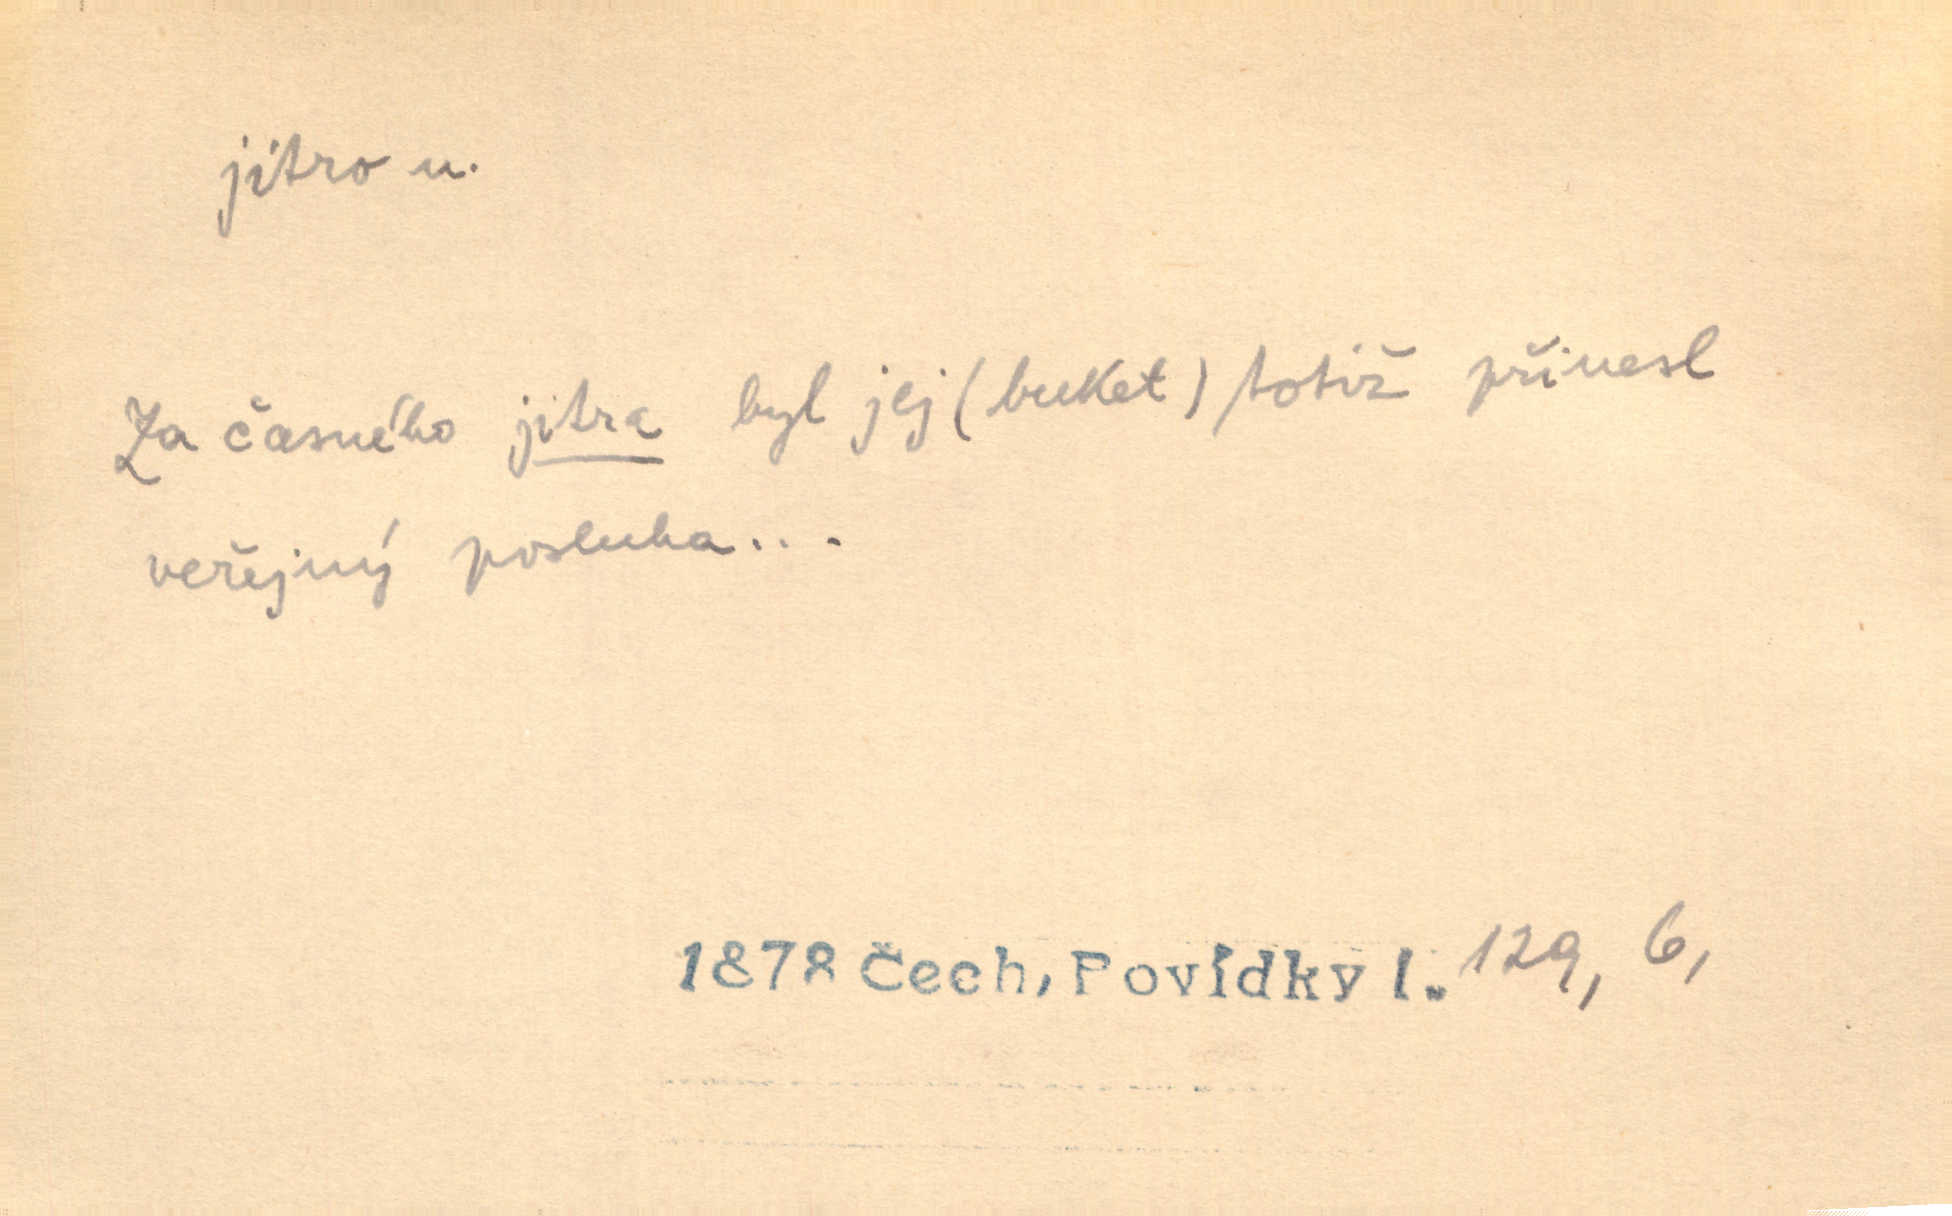 jitro n.
Za časného jitra byl jej (buket) totiž přinesl
veřejný posluha...
1878 Čech, Povídky I. 129, 6,